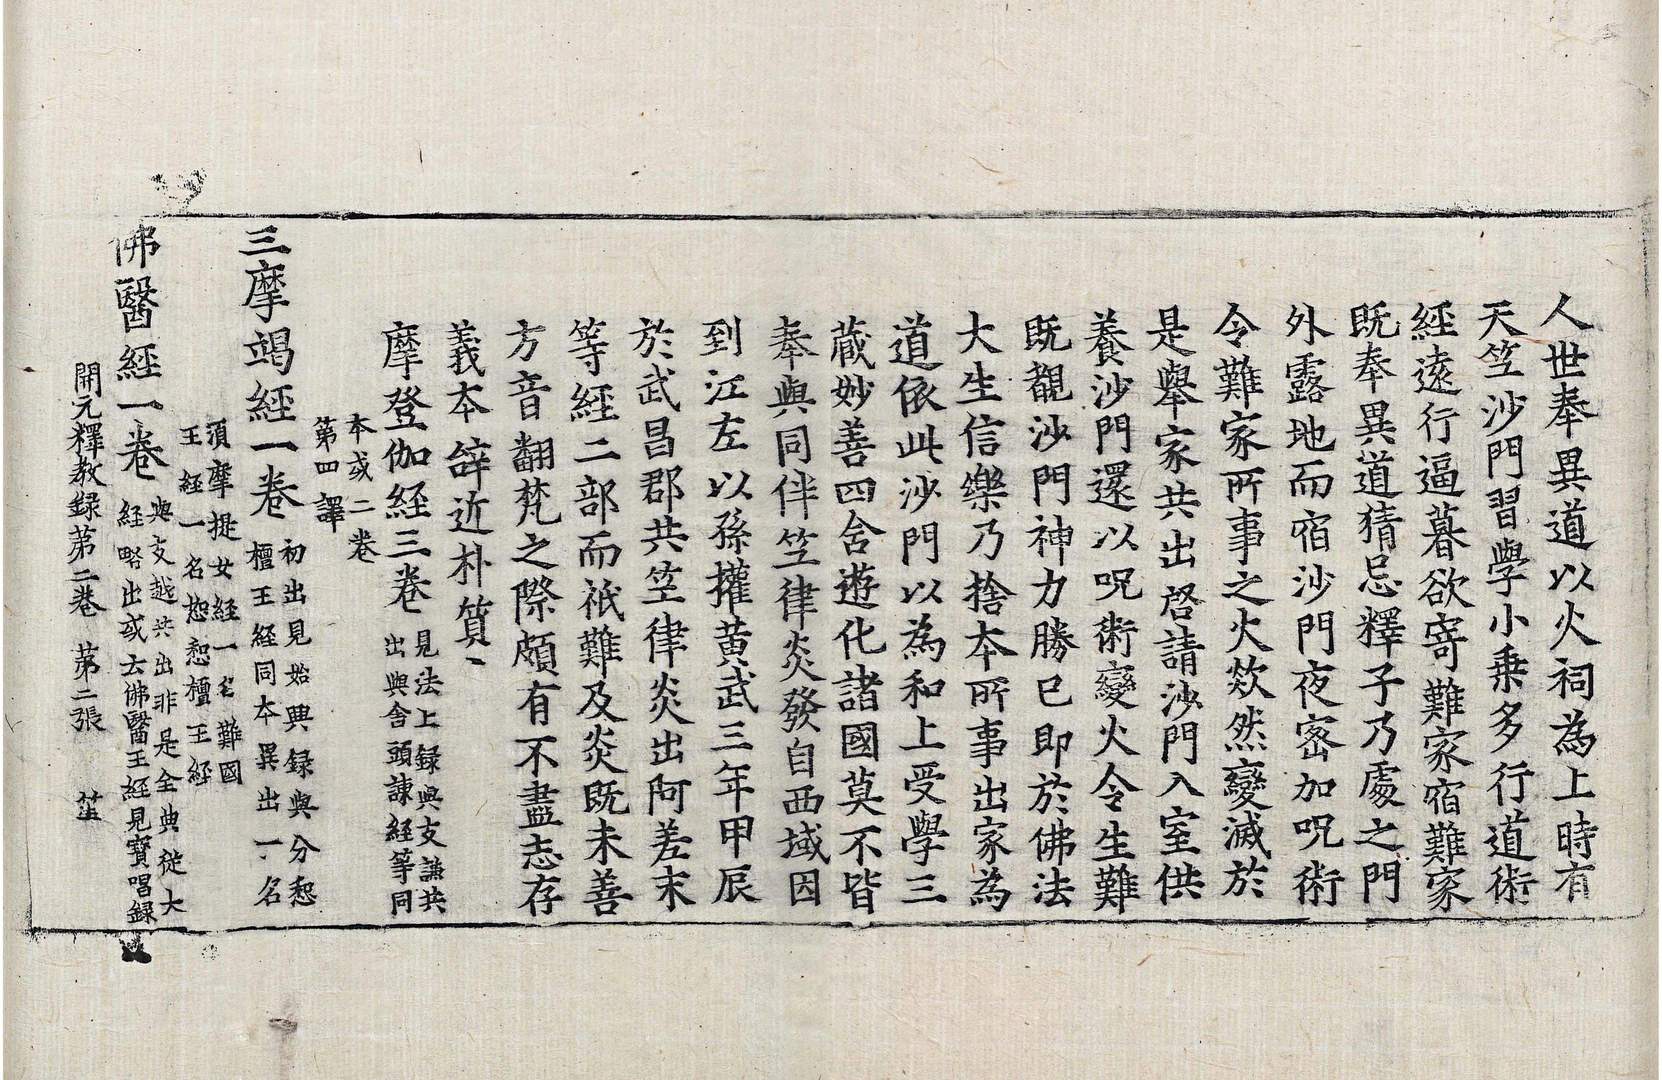 人世奉異道以火祠為上時有
天竺沙門習學小乗多行道術
經遠行逼暮欲寄難家宿難家
既奉異道猜忌釋子乃處之門
外露地而宿沙門夜密加呪術
令難家所事之火欻然變滅於
是舉家共出啓請沙門入室供
養沙門還以呪術變火令生難
既覩沙門神力勝已即於佛法
大生信樂乃捨夲所事出家為
道依此沙門以為和上受學三
蔵妙善四含遊化諸國莫不皆
奉與同伴竺律炎發自西域因
到江左以孫權黄武三年甲辰
於武昌郡共竺律炎出阿差末
等經二部而祇難及炎既未善
方音翻梵之際頗有不盡志存
義夲辝近朴質
摩登伽經三卷
見法上録與支謙共
出與舍頭諫經等同
夲或二卷
第四譯
三摩竭經一卷
初出見始興録與分惒
檀王經同夲異出一名
須摩提女經一名難國
王經一名惒惒檀王經
佛醫經一卷
與支越共出非是全典從大
經略出或云佛醫王經見寳唱録
開元釋教録第二卷　第二張　笙